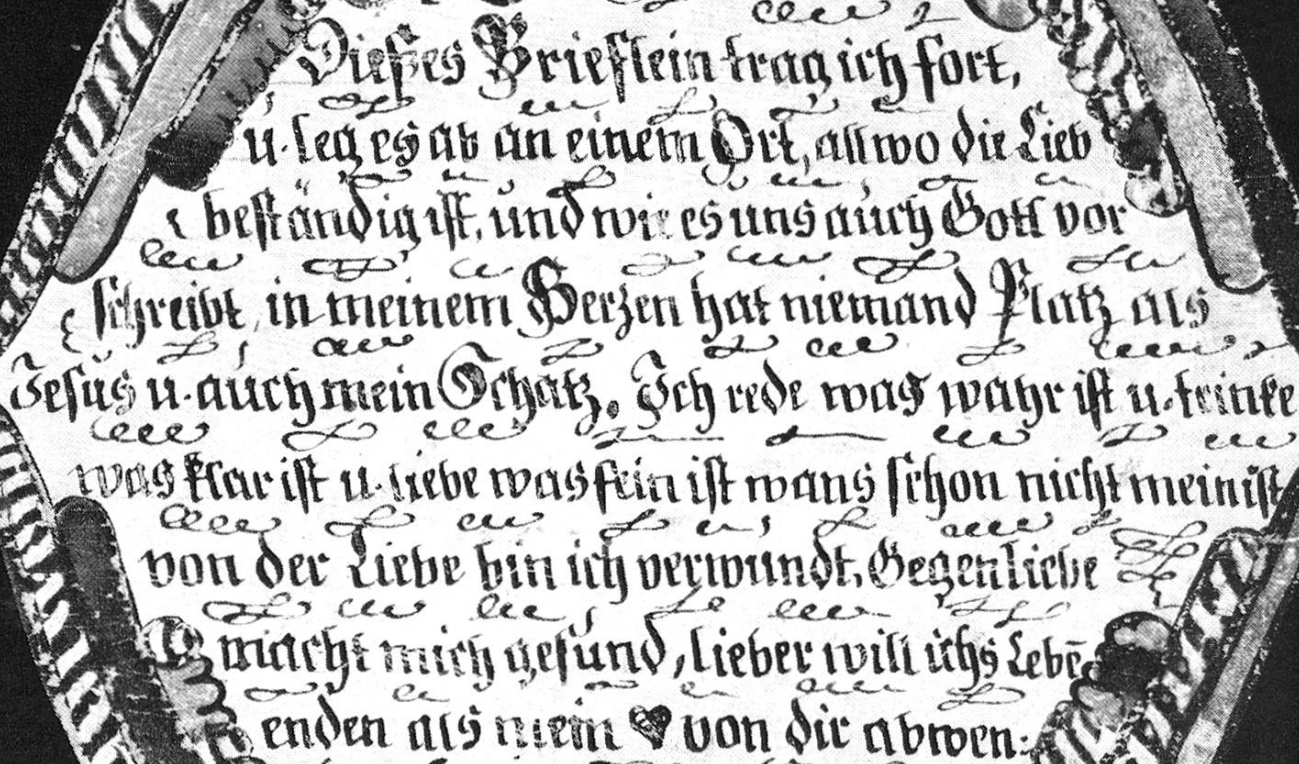 Dieses Brieflein trag ich fort,
u. leg es ab an einem Ort, allwo die Lieb
beständig ist, und wie es uns auch Gott vor
schreibt, in meinem Herzen hat niemand Platz als
Jesus u. auch mein Schatz. Ich rede was wahr ist u. trinke
was klar ist u. liebe was fein ist wans schon nicht mein ist
von der Liebe bin ich verwundt, Gegenliebe
macht mich gesund, lieber will ichs Lebē
enden als mein ♥ von dir abwen: